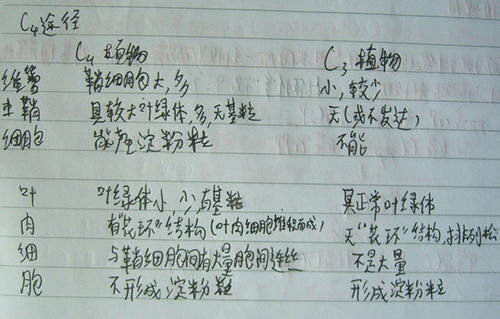 C₄途径
C₄植物 C₃植物
维管 鞘细胞大,多 小,较少
束鞘 具较大叶绿体,多,无基粒 无(或不发达)
细胞 能产淀粉粒 不能
叶 叶绿体小,少,有基粒 具正常叶绿体
肉 有"花环"结构(叶肉细胞堆积而成) 无"花环"结构,排列松
细 与鞘细胞间有大量胞间连丝 不是大量
胞 不形成淀粉粒 形成淀粉粒